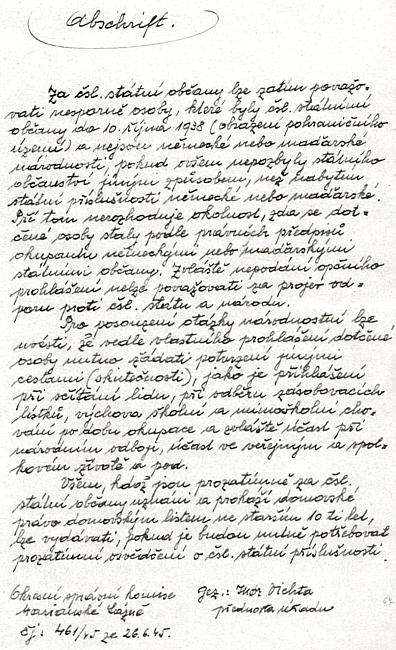 Abschrift.
Za čsl. státní občany lze zatím považo-
vati nesporně osoby, které byly čsl. státními
občany do 10. října 1938 (obsazení pohraničního
území) a nejsou německé nebo maďarské
národnosti, pokud ovšem nepozbyly státního
občanství jiným způsobem, než nabytím
státní příslušnosti německé nebo maďarské.
Při tom nerozhoduje okolnost, zda se dot-
čené osoby staly podle právních předpisů
okupantů německými nebo maďarskými
státními občany. Zvláště nepodání opčního
prohlášení nelze považovati za projev od-
poru proti čsl. státu a národu.
Pro posouzení otázky národnostní lze
uvésti, že vedle vlastního prohlášení dotčené
osoby nutno žádati potvrzení jinými
cestami (skutečnosti), jako je přihlášení
při sčítání lidu, při odběru zásobovacích
lístků, výchova školní a mimoškolní cho-
vání po dobu okupace a zvláště účast při
národním odboji, účast ve veřejným a spol-
kovém životě a pod.
Všem, kdož jsou prozatímně za čsl.
státní občany uznáni a prokáží domovské
právo domovským listem ne starším 10 ti let,
lze vydávati, pokud je budou nutně potřebovat
prozatímní osvědčení o čsl. státní příslušnosti.
Okresní správní komise
Mariánské Lázně
čj: 461/45 ze 26.6.45.
gez.: Vichta
přednosta úřadu